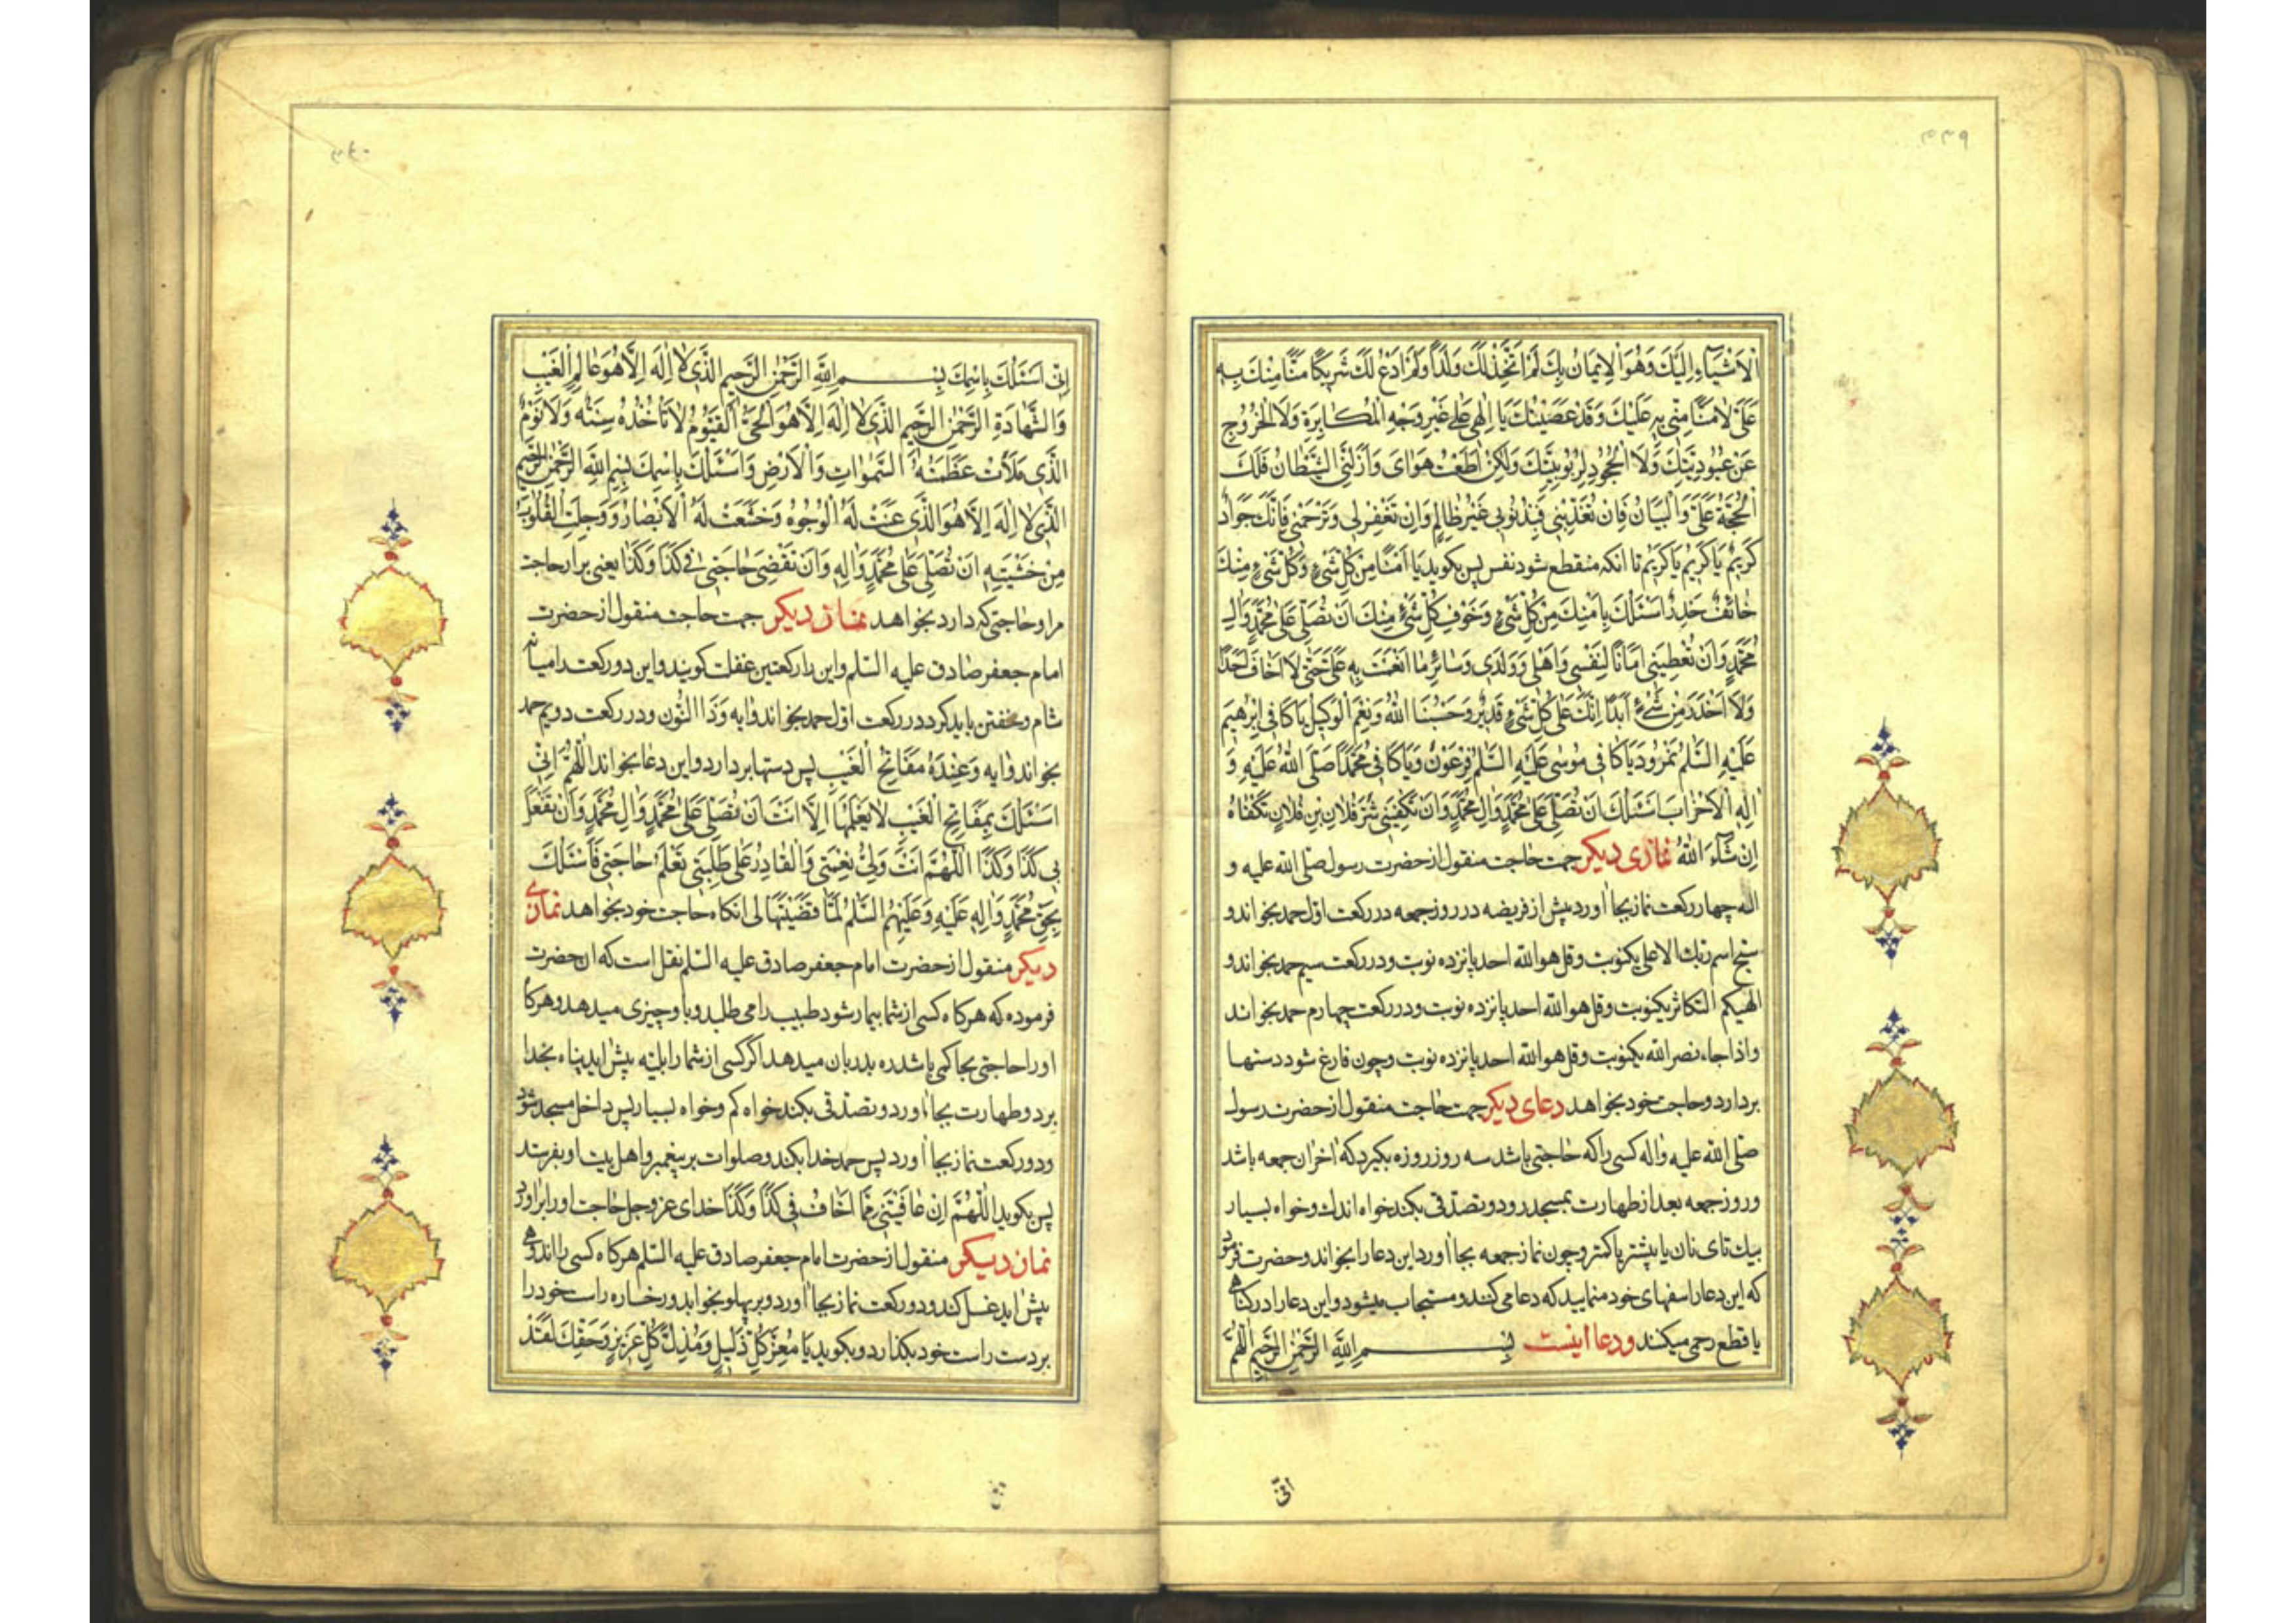 ۵۳۹
الْاَشْيَآءِ اِلَيْكَ وَهُوَ الْاِيمَانُ بِكَ لَمْ اَتَّخِذْ لَكَ وَلَدًا وَلَمْ اَدْعُ لَكَ شَرِيكًا مَنًّا مِنْكَ بِهِ
عَلَىَّ لَا مَنًّا مِنّى بِهِ عَلَيْكَ وَقَدْ عَصَيْتُكَ يَا اِلٰهى عَلٰى غَيْرِ وَجْهِ الْمُكَابِرَةِ وَلَا الْخُرُوجِ
عَنْ عُبُودِيَّتِكَ وَلَا الْجُحُودِ لِرُبُوبِيَّتِكَ وَلٰكِنْ اَطَعْتُ هَوَاىَ وَاَزَلَّنِى الشَّيْطَانُ فَلَكَ
الْحُجَّةُ عَلَىَّ وَالْبَيَانُ فَاِنْ تُعَذِّبْنى فَبِذُنُوبى غَيْرُ ظَالِمٍ وَاِنْ تَغْفِرْ لى وَتَرْحَمْنى فَاِنَّكَ جَوَادٌ
كَرِيمٌ يَا كَرِيمُ يَا كَرِيمُ تا انكه منقطع شود نفس پس بكويد يَا اٰمِنًا مِنْ كُلِّ شَىْءٍ وَكُلُّ شَىْءٍ مِنْكَ
خَائِفٌ حَذِرٌ اَسْئَلُكَ بِاَمْنِكَ مِنْ كُلِّ شَىْءٍ وَخَوْفِ كُلِّ شَىْءٍ مِنْكَ اَنْ تُصَلِّىَ عَلٰى مُحَمَّدٍ وَاٰلِ
مُحَمَّدٍ وَاَنْ تُعْطِيَنى اَمَانًا لِنَفْسى وَاَهْلى وَوَلَدى وَسَائِرِ مَا اَنْعَمْتَ بِهِ عَلَىَّ حَتّٰى لَا اَخَافَ اَحَدًا
وَلَا اَحْذَرَ مِنْ شَىْءٍ اَبَدًا اِنَّكَ عَلٰى كُلِّ شَىْءٍ قَدِيرٌ وَحَسْبُنَا اللهُ وَنِعْمَ الْوَكِيلُ يَا كَافِىَ اِبْرٰهِيمَ
عَلَيْهِ السَّلٰمُ نَمْرُودَ يَا كَافِىَ مُوسٰى عَلَيْهِ السَّلٰمُ فِرْعَوْنَ وَيَا كَافِىَ مُحَمَّدًا صَلَّى اللهُ عَلَيْهِ وَ
اٰلِهِ الْاَحْزَابَ اَسْئَلُكَ اَنْ تُصَلِّىَ عَلٰى مُحَمَّدٍ وَاٰلِ مُحَمَّدٍ وَاَنْ تَكْفِيَنى شَرَّ فُلَانِ بْنِ فُلَانٍ تُكْفَاهُ
اِنْ شَآءَ اللهُ نمازى ديكر جهت حاجت منقول از حضرت رسول صلى الله عليه و
اله چهار ركعت نماز بجا اورد پيش از فريضه در روز جمعه در ركعت اول حمد بخواند و
سبح اسم ربك الاعلى يكنوبت و قل هو الله احد پانزده نوبت و در ركعت سيم حمد بخواند و
الهيكم التكاثر يكنوبت و قل هو الله احد پانزده نوبت و در ركعت چهارم حمد بخواند
و اذا جاء نصر الله يكنوبت و قل هو الله احد پانزده نوبت و چون فارغ شود دستها
بردارد و حاجت خود بخواهد دعاى ديكر جهت حاجت منقول از حضرت رسول
صلى الله عليه واله كسى را كه حاجتى باشد سه روز روزه بكيرد كه اخران جمعه باشد
و روز جمعه بعد از طهارت بمسجد رود و تصدقى بكند خواه اندك و خواه بسيار
بيك تاى نان يا بيشتر يا كمتر و چون نماز جمعه بجا اورد اين دعا را بخواند و حضرت فرمود
كه اين دعا را سفهاى خود منماييد كه دعا مى كنند و مستجاب ميشود و اين دعا را در كناهى
يا قطع رحمى ميكند و دعا اينست بِسْمِ اللهِ الرَّحْمٰنِ الرَّحِيمِ اَللّٰهُمَّ
انّى
۵۴۰
اِنّى اَسْئَلُكَ بِاسْمِكَ بِسْمِ اللهِ الرَّحْمٰنِ الرَّحِيمِ الَّذى لَا اِلٰهَ اِلَّا هُوَ عَالِمُ الْغَيْبِ
وَالشَّهَادَةِ الرَّحْمٰنِ الرَّحِيمِ الَّذى لَا اِلٰهَ اِلَّا هُوَ الْحَىُّ الْقَيُّومُ لَا تَأْخُذُهُ سِنَةٌ وَلَا نَوْمٌ
الَّذى مَلَأَتْ عَظَمَتُهُ السَّمٰوَاتِ وَالْاَرْضِ وَاَسْئَلُكَ بِاسْمِكَ بِسْمِ اللهِ الرَّحْمٰنِ الرَّحِيمِ
الَّذى لَا اِلٰهَ اِلَّا هُوَ الَّذى عَنَتْ لَهُ الْوُجُوهُ وَخَشَعَتْ لَهُ الْاَبْصَارُ وَوَجِلَتِ الْقُلُوبُ
مِنْ خَشْيَتِهِ اَنْ تُصَلِّىَ عَلٰى مُحَمَّدٍ وَاٰلِهِ وَاَنْ تَقْضِىَ حَاجَتى فى كَذَا وَكَذَا يعنى برار حاجت
مرا و حاجتى كه دارد بخواهد نماز ديكر جهت حاجت منقول از حضرت
امام جعفر صادق عليه السلم و اين را ركعتين غفلت كويند و اين دو ركعت را ميان
شام و خفتن بايد كرد در ركعت اول حمد بخواند و ايه وَذَا النُّون و در ركعت دويم حمد
بخواند و ايه وَعِنْدَهُ مَفَاتِحُ الْغَيْبِ پس دستها بردارد و اين دعا بخواند اَللّٰهُمَّ اِنّى
اَسْئَلُكَ بِمَفَاتِحِ الْغَيْبِ لَا يَعْلَمُهَا اِلَّا اَنْتَ اَنْ تُصَلِّىَ عَلٰى مُحَمَّدٍ وَاٰلِ مُحَمَّدٍ وَاَنْ تَفْعَلَ
بى كَذَا وَكَذَا اَللّٰهُمَّ اَنْتَ وَلِىُّ نِعْمَتى وَالْقَادِرُ عَلٰى طَلِبَتى تَعْلَمُ حَاجَتى فَاَسْئَلُكَ
بِحَقِّ مُحَمَّدٍ وَاٰلِهِ عَلَيْهِ وَعَلَيْهِمُ السَّلٰمُ لَمَّا قَضَيْتَهَا لى انكاه حاجت خود بخواهد نمازى
ديكر منقول از حضرت امام جعفر صادق عليه السلم نقل است كه ان حضرت
فرموده كه هر كاه كسى از شما بيمار شود طبيب را مى طلبد و باو چيزى ميدهد و هر كاه
او را حاجتى بحاكمى باشد ره بدربان ميدهد اكر كسى از شما را بليه پيش ايد پناه بخدا
برد و طهارت بجا اورد و تصدقى بكند خواه كم و خواه بسيار پس داخل مسجد شود
و دو ركعت نماز بجا اورد پس حمد خدا بكند و صلوات بر پيغمبر و اهل بيت او بفرستد
پس بكويد اَللّٰهُمَّ اِنْ عَافَيْتَنى مِمَّا اَخَافُ فى كَذَا وَكَذَا خداى عز و جل حاجت او را براورد
نماز ديكر منقول از حضرت امام جعفر صادق عليه السلم هر كاه كسى را اندوهى
پيش ايد غسل كند و دو ركعت نماز بجا اورد و بر پهلو بخوابد و رخساره راست خود را
بر دست راست خود بكذارد و بكويد يَا مُعِزَّ كُلِّ ذَلِيلٍ وَمُذِلَّ كُلِّ عَزِيزٍ وَحَقِّكَ لَقَدْ